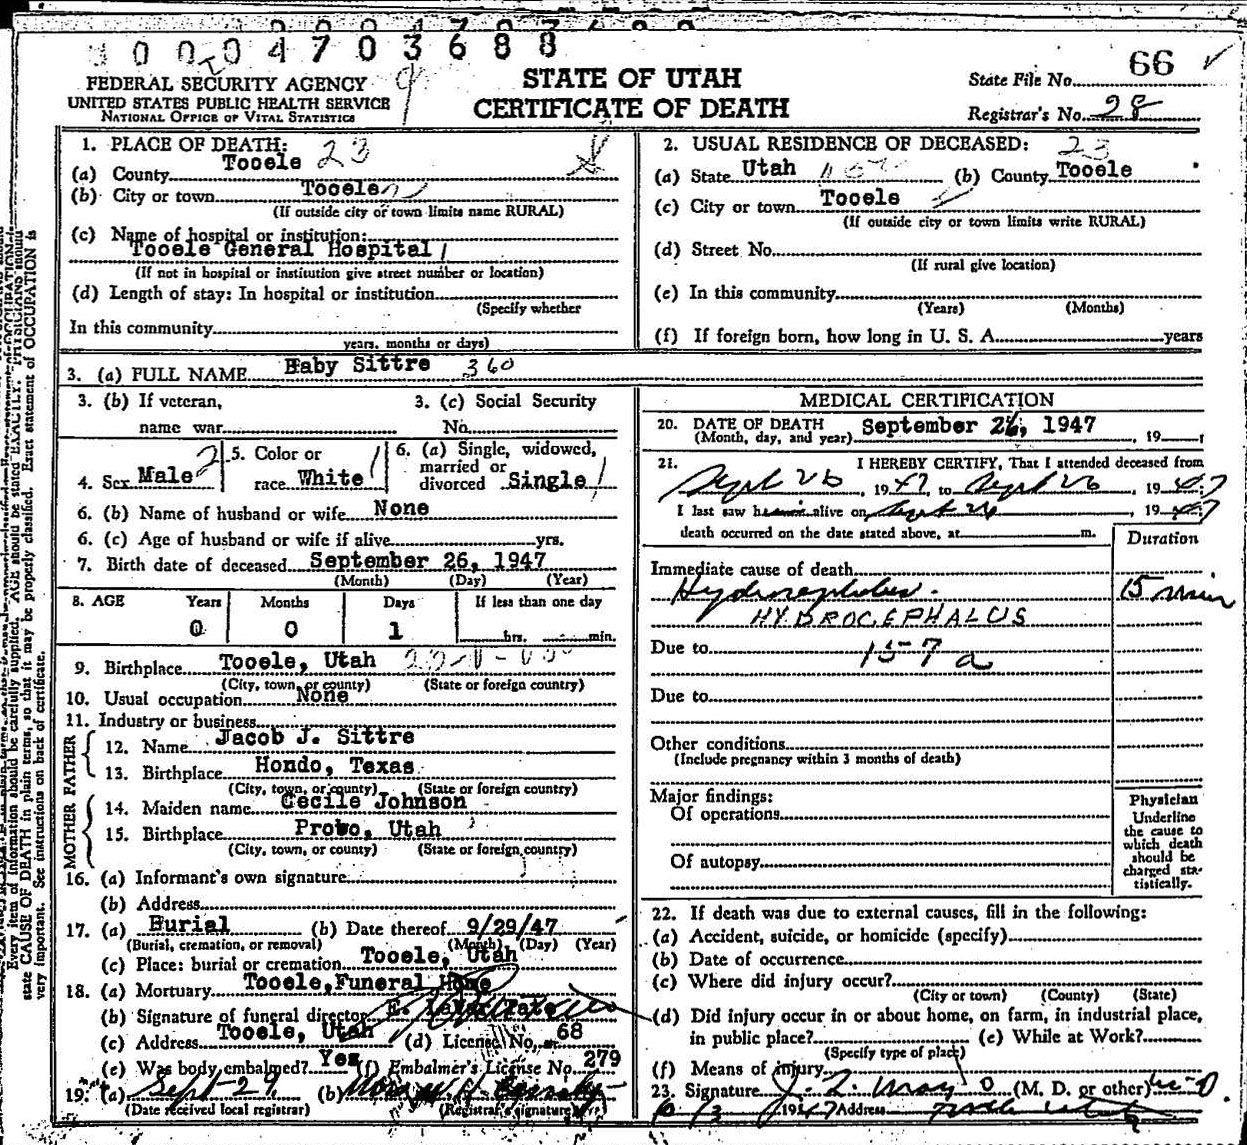 0 0 0 4 7 0 3 6 8 8
FEDERAL SECURITY AGENCY
UNITED STATES PUBLIC HEALTH SERVICE
NATIONAL OFFICE OF VITAL STATISTICS
STATE OF UTAH
CERTIFICATE OF DEATH
State File No. 66
Registrar's No. 28
1. PLACE OF DEATH: 23
(a) County Tooele
(b) City or town Tooele
(If outside city or town limits name RURAL)
(c) Name of hospital or institution:
Tooele General Hospital
(If not in hospital or institution give street number or location)
(d) Length of stay: In hospital or institution
(Specify whether
In this community
years, months or days)
2. USUAL RESIDENCE OF DECEASED: 23
(a) State Utah (b) County Tooele
(c) City or town Tooele
(If outside city or town limits write RURAL)
(d) Street No.
(If rural give location)
(e) In this community
(Years) (Months)
(f) If foreign born, how long in U. S. A. years
3. (a) FULL NAME Baby Sittre 360
3. (b) If veteran,
name war
3. (c) Social Security
No.
4. Sex Male 2
5. Color or
race White 1
6. (a) Single, widowed,
married or
divorced Single 1
6. (b) Name of husband or wife None
6. (c) Age of husband or wife if alive yrs.
7. Birth date of deceased September 26, 1947
(Month) (Day) (Year)
8. AGE Years Months Days If less than one day
0 0 1 hrs. min.
9. Birthplace Tooele, Utah
(City, town, or county) (State or foreign country)
10. Usual occupation None
11. Industry or business
FATHER
12. Name Jacob J. Sittre
13. Birthplace Hondo, Texas
(City, town, or county) (State or foreign country)
MOTHER
14. Maiden name Cecile Johnson
15. Birthplace Provo, Utah
(City, town, or county) (State or foreign country)
16. (a) Informant's own signature
(b) Address
17. (a) Burial (b) Date thereof 9/29/47
(Burial, cremation, or removal) (Month) (Day) (Year)
(c) Place: burial or cremation Tooele, Utah
18. (a) Mortuary Tooele, Funeral Home
(b) Signature of funeral director
(c) Address Tooele, Utah (d) License No. 68
(e) Was body embalmed? Yes (f) Embalmer's License No. 279
19. (a) Sept-29 (b)
(Date received local registrar) (Registrar's signature)
MEDICAL CERTIFICATION
20. DATE OF DEATH
(Month, day, and year) September 26, 1947, 19
21. I HEREBY CERTIFY, That I attended deceased from
Sept 26, 1947, to Sept 26, 1947
I last saw him alive on Sept 26, 1947
death occurred on the date stated above, at m.
Duration
Immediate cause of death
Hydrocephalus. 15 min
HYDROCEPHALUS
Due to 157a
Due to
Other conditions
(Include pregnancy within 3 months of death)
Major findings:
Of operations
Of autopsy
Physician
Underline
the cause to
which death
should be
charged sta-
tistically.
22. If death was due to external causes, fill in the following:
(a) Accident, suicide, or homicide (specify)
(b) Date of occurrence
(c) Where did injury occur?
(City or town) (County) (State)
(d) Did injury occur in or about home, on farm, in industrial place,
in public place? (e) While at Work?
(Specify type of place)
(f) Means of injury
23. Signature (M. D. or other) M-D
1947 Address Tooele Utah